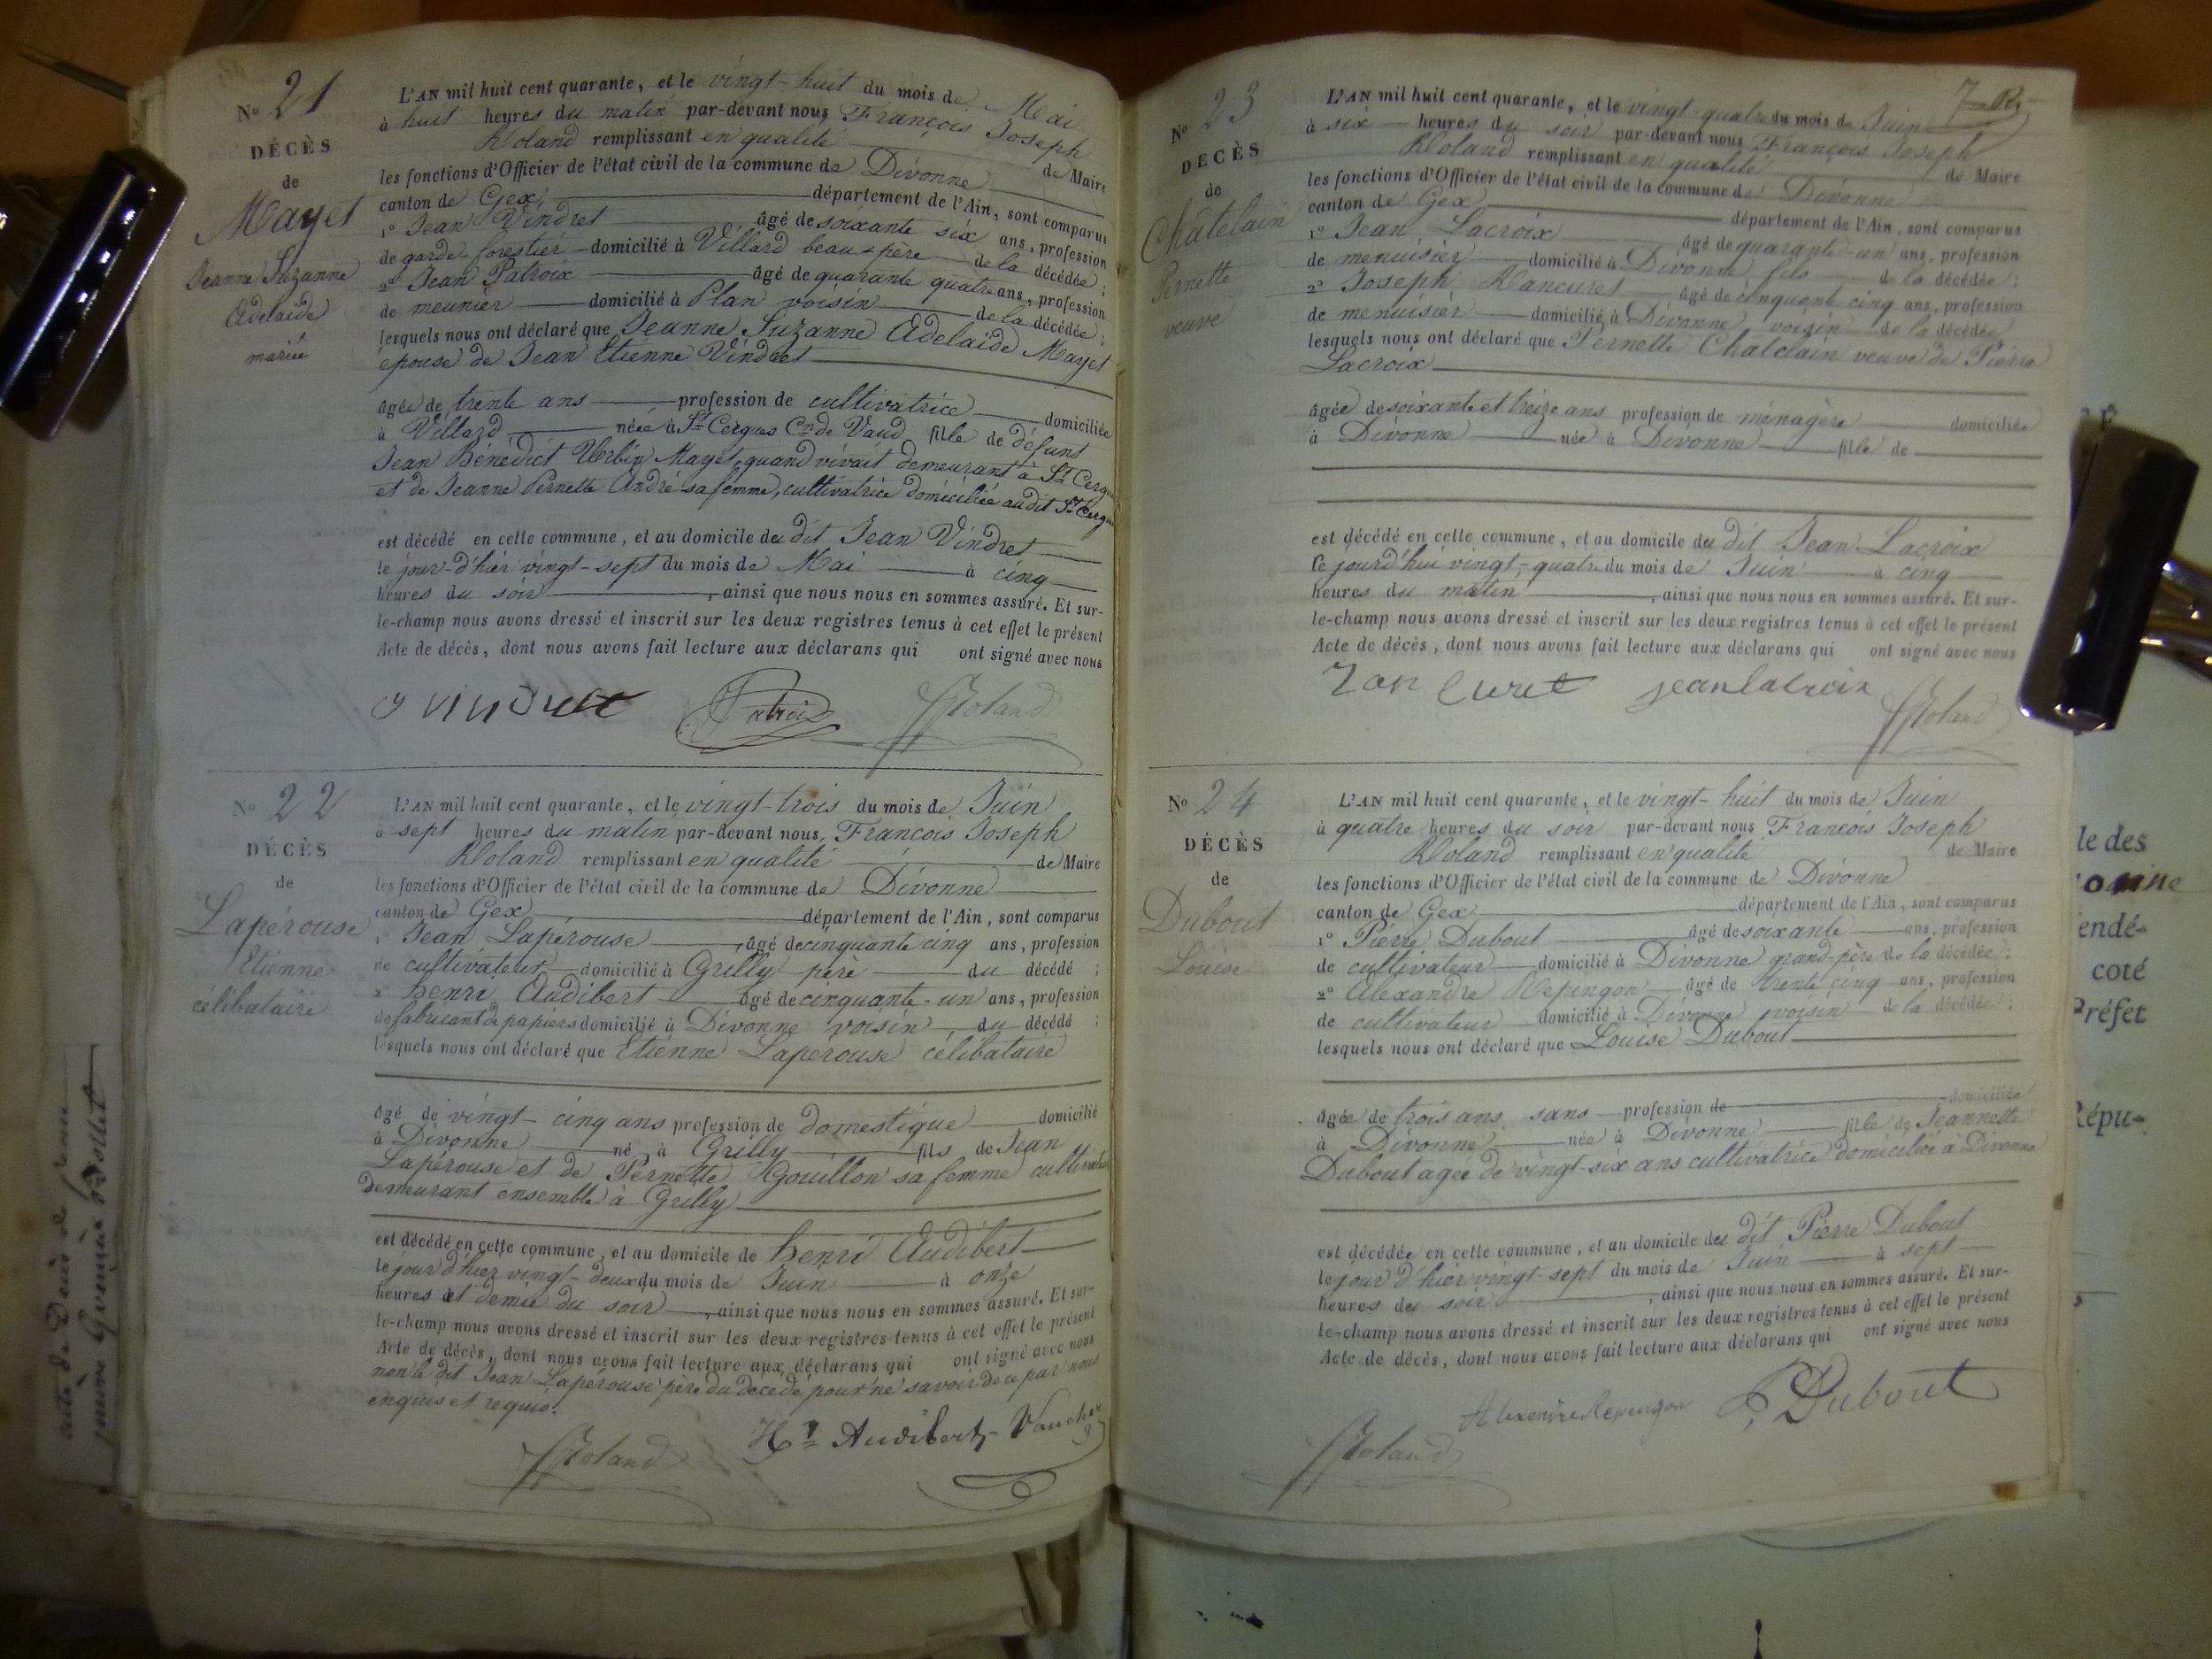 N° 21
DÉCÈS
de
Mayet
Jeanne Suzanne
Adelaïde
mariée
L'AN mil huit cent quarante, et le vingt-huit du mois de Mai
à huit heures du matin par-devant nous François Joseph
Roland remplissant en qualité de Maire
les fonctions d'Officier de l'état civil de la commune de Divonne
canton de Gex département de l'Ain, sont comparus
1° Jean Vindret âgé de soixante six ans, profession
de garde-forestier domicilié à Villard beau-père de la décédée;
2° Jean Patroix âgé de quarante quatre ans, profession
de meunier domicilié à Plan voisin de la décédée;
lesquels nous ont déclaré que Jeanne Suzanne Adelaïde Mayet
épouse de Jean Etienne Vindret
âgée de trente ans profession de cultivatrice domiciliée
à Villard née à St Cergues Con de Vaud fille de défunt
Jean Bénédict Urbin Mayet, quand vivait demeurant à St Cergues
et de Jeanne Pernette André sa femme, cultivatrice domiciliée au dit St Cergues
est décédé en cette commune, et au domicile du dit Jean Vindret
le jour-d'hier vingt-sept du mois de Mai à cinq
heures du soir, ainsi que nous nous en sommes assuré. Et sur-
le-champ nous avons dressé et inscrit sur les deux registres tenus à cet effet le présent
Acte de décès, dont nous avons fait lecture aux déclarans qui ont signé avec nous
J vindret Patroix Roland
N° 22
DÉCÈS
de
Lapérouse
Etienne
célibataire
L'AN mil huit cent quarante, et le vingt-trois du mois de Juin
à sept heures du matin par-devant nous François Joseph
Roland remplissant en qualité de Maire
les fonctions d'Officier de l'état civil de la commune de Divonne
canton de Gex département de l'Ain, sont comparus
1° Jean Lapérouse, âgé de cinquante cinq ans, profession
de cultivateur domicilié à Grilly père du décédé;
2° henri Audibert âgé de cinquante-un ans, profession
de fabricant de papiers domicilié à Divonne voisin du décédé;
lesquels nous ont déclaré que Etienne Lapérouse célibataire
âgé de vingt-cinq ans profession de domestique domicilié
à Divonne né à Grilly fils de Jean
Lapérouse et de Pernette Gouillon sa femme
demeurant ensemble à Grilly
est décédé en cette commune, et au domicile de henri Audibert
le jour d'hier vingt-deux du mois de Juin à onze
heures et demie du soir, ainsi que nous nous en sommes assuré. Et sur-
le-champ nous avons dressé et inscrit sur les deux registres tenus à cet effet le présent
Acte de décès, dont nous avons fait lecture aux déclarans qui ont signé avec nous
non le dit Jean Lapérouse père du décédé pour ne savoir de ce par nous
enquis et requis.
Roland Hi Audibert-Vaucher
N° 23
DÉCÈS
de
Châtelain
Pernette
veuve
7
L'AN mil huit cent quarante, et le vingt-quatre du mois de Juin
à six heures du soir par-devant nous François Joseph
Roland remplissant en qualité de Maire
les fonctions d'Officier de l'état civil de la commune de Divonne
canton de Gex département de l'Ain, sont comparus
1° Jean Lacroix âgé de quarante-un ans, profession
de menuisier domicilié à Divonne fils de la décédée;
2° Joseph Rancuret âgé de cinquante cinq ans, profession
de menuisier domicilié à Divonne voisin de la décédée
lesquels nous ont déclaré que Pernette Chatelain veuve de Pierre
Lacroix
âgée de soixante et treize ans profession de ménagère domiciliée
à Divonne née à Divonne fille de
est décédé en cette commune, et au domicile du dit Jean Lacroix
le jourd'hui vingt-quatre du mois de Juin à cinq
heures du matin, ainsi que nous nous en sommes assuré. Et sur-
le-champ nous avons dressé et inscrit sur les deux registres tenus à cet effet le présent
Acte de décès, dont nous avons fait lecture aux déclarans qui ont signé avec nous
Rancuret jean lacroix Roland
N° 24
DÉCÈS
de
Dubout
Louise
L'AN mil huit cent quarante, et le vingt-huit du mois de Juin
à quatre heures du soir par-devant nous François Joseph
Roland remplissant en qualité de Maire
les fonctions d'Officier de l'état civil de la commune de Divonne
canton de Gex département de l'Ain, sont comparus
1° Pierre Dubout âgé de soixante ans, profession
de cultivateur domicilié à Divonne grand-père de la décédée;
2° Alexandre Repingon âgé de trente cinq ans, profession
de cultivateur domicilié à Divonne voisin de la décédée;
lesquels nous ont déclaré que Louise Dubout
âgée de trois ans sans profession de domiciliée
à Divonne née à Divonne fille de Jeannette
Dubout agée de vingt-six ans cultivatrice domiciliée à Divonne
est décédée en cette commune, et au domicile du dit Pierre Dubout
le jour d'hier vingt-sept du mois de Juin à sept
heures du soir, ainsi que nous nous en sommes assuré. Et sur-
le-champ nous avons dressé et inscrit sur les deux registres tenus à cet effet le présent
Acte de décès, dont nous avons fait lecture aux déclarans qui ont signé avec nous
Alexandre Repingon P. Dubout
Roland
le des
endé-
coté
Préfet
Répu-